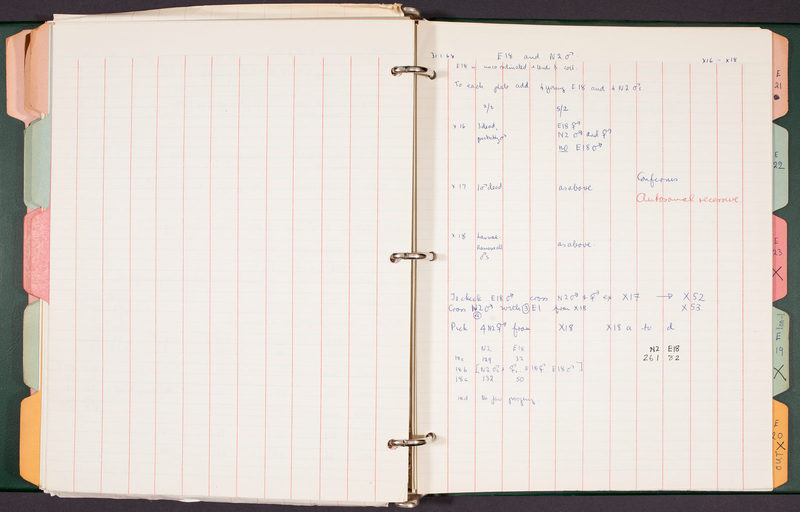 E18 and N2 ♂
X16 - X18
E18 is uncoordinated & tends to coil.
To each plate add 4 young E18 and 6 N2 ♂s.
2/2 5/2
X16 3 dead, E18 ⚥
probably ♂ N2 ♂ and ⚥
no E18 ♂
X17 1♂ dead as above Confirms
Autosomal recessive
X18 Larvae as above
Removed
♂s
To check E18 ♂ cross N2 ♂ & ⚥ ex X17 → X52
Cross N2 ♂ with ③ E1 from X18 X53
⑥
Pick 4 N2 ⚥ from X18 X18 a to d
N2 E18 N2 E18
18a 129 32 261 82
18b [N2 ♂ + ⚥, E18 ⚥ E18 ♂]
18c 132 50
18d too few progeny
E
21
E
22
E
23
X
E
19
X
E
20
X
OUT